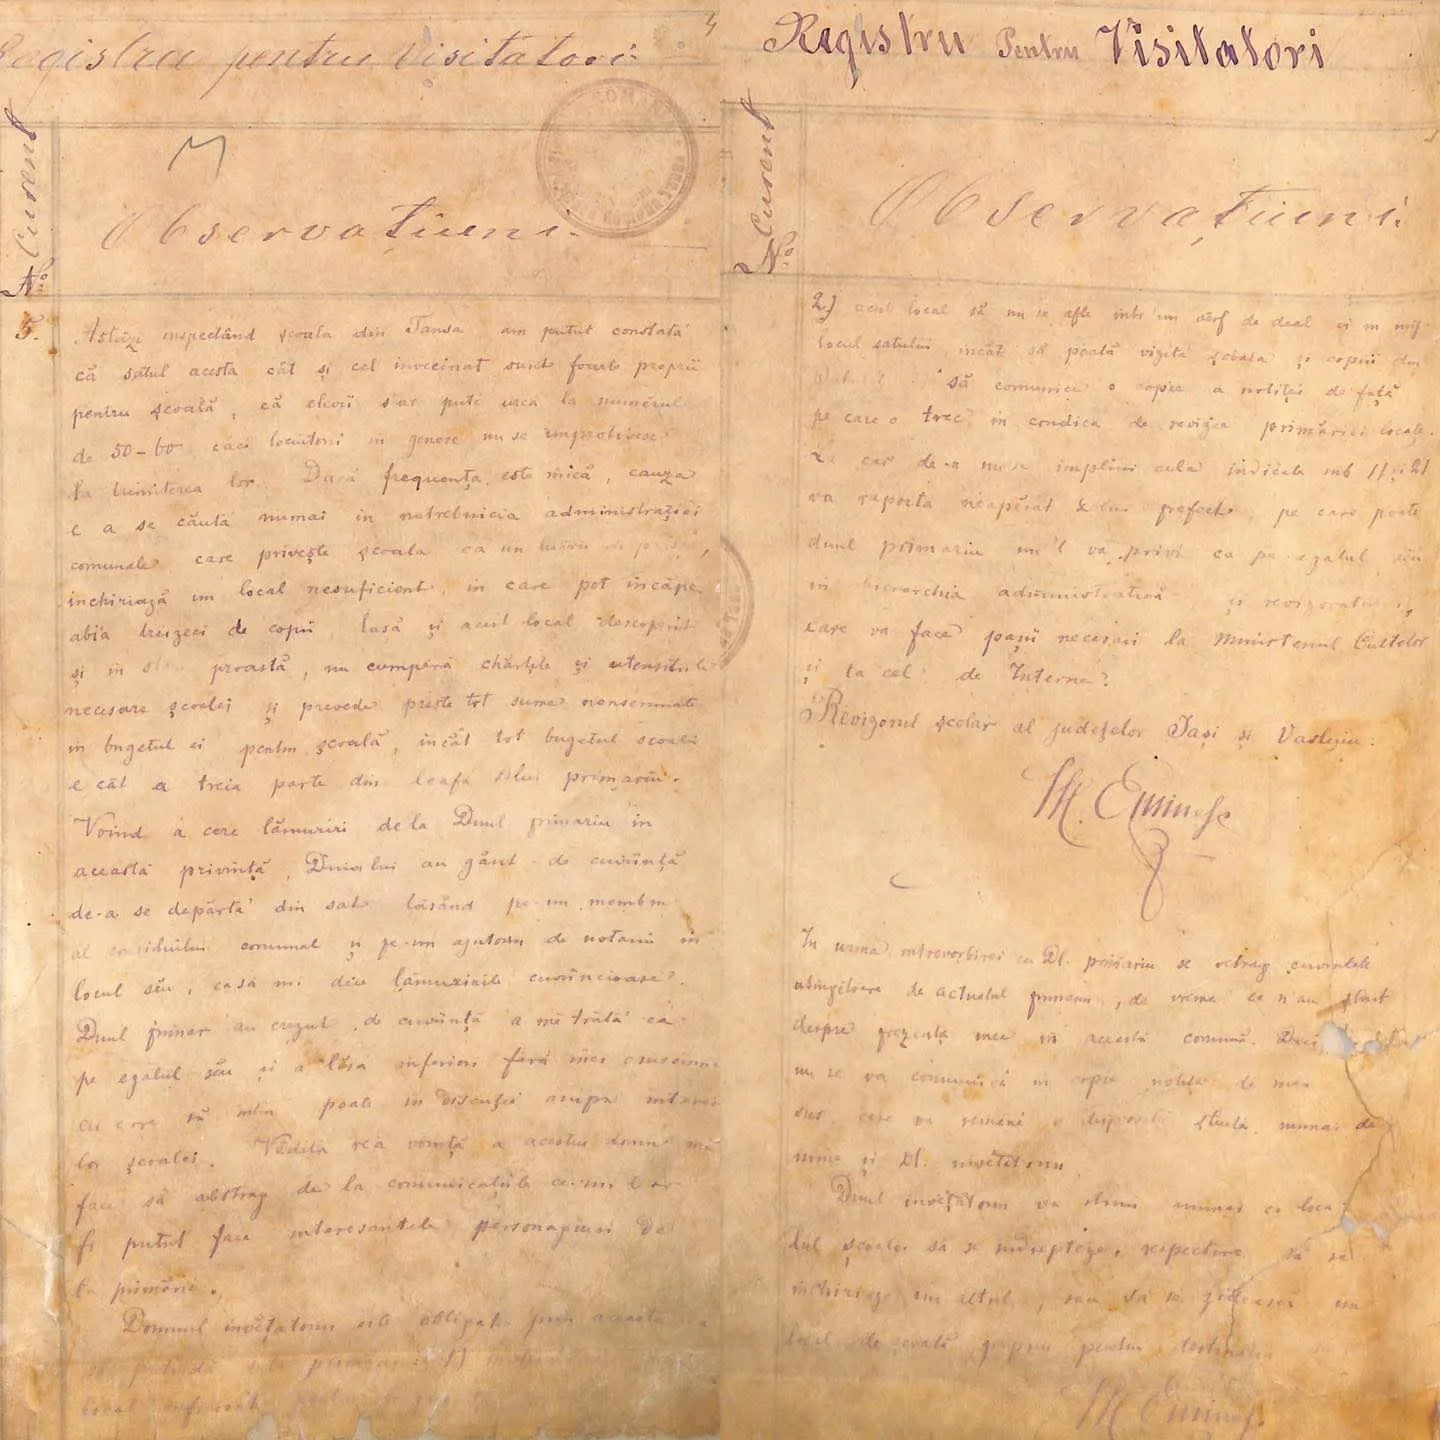 Registru pentru Visitatori
No. Curent
Observațiuni.
5. Astăzi inspectând școala din Tansa am putut constată
că satul acesta cât și cel învecinat sunt foarte proprii
pentru școală, că elevii s'ar pute urca la numărul
de 50-60 căci locuitorii în genere nu se împotrivesc
la trimiterea lor. Dacă frequența este mică, cauza
e a se căută numai in netrebnicia administrației
comunale care privește școala ca un lucru de
inchiriază un local nesuficient, in care pot încăpe
abia treizeci de copii, lasă și acest local descoperit
și in proastă, nu cumpără chărțile și utensiliile
necesare școalei și prevede preste tot sume nensemnate
in bugetul ei pentru școală, incât tot bugetul școalei
e cât a treia parte din leafa d-lui primariu.
Voind a cere lămuriri de la Dnul primariu in
aceasta privință, Dniealui au găsit de cuviință
de-a se depărta din sat lăsând pe-un membru
al consiliului comunal și pe-un ajutoru de notariu in
locul său, ca să-mi dea lămuririle cuviincioase?
Dnul primar au crezut de cuviință a mĕ trată ca
pe egalul său și a lăsa inferiori fără nici
cu care să intru poate in discuție asupra interese
lor școalei. Vădita rea voință a acestui domn mĕ
face să abstrag de la comunicațiile ce mi le ar
fi putut face interesantele personagiuri de
la primărie.
Domnul invețatoru este obligat prin aceasta a
primariei: 1)
local
Registru Pentru Visitatori
No. Curent
Observațiuni.
2) acest local să nu se afle intr'un vĕrf de deal ci in mij-
locul satului incât să poată vizita școala și copiii din
să comunice o copie a notiței de față
pe care o trec in condica de revizie primăriei locale.
Ear de-a nu se împlini cele indicate sub 1) și 2)
va raporta neapărat d-lui prefect, pe care poate
dnul primariu nu'l va privi ca pe egalul său
in hierarchia administrativă, și revizoratului,
care va face pașii necesari la Ministeriul Cultelor
și la cel de Interne.
Revizorul școlar al județelor Iași și Vasluiu.
M. Eminescu
In urma intrevorbirei cu Dl. primariu se retrag cuvintele
atingătoare de actualul primariu, de vreme ce n'au știut
despre prezența mea in această comună.
nu se va comunică in copie notița de mai
sus, care va remâne o dispoziție știută numai de
mine și Dl. invĕțătoriu
Dnul invĕțătoriu va stărui numai ca loca-
lul școalei să se indrepteze, respective să se
inchirieze un altul, sau să se zidească un
local de școală propriu pentru
M. Eminescu